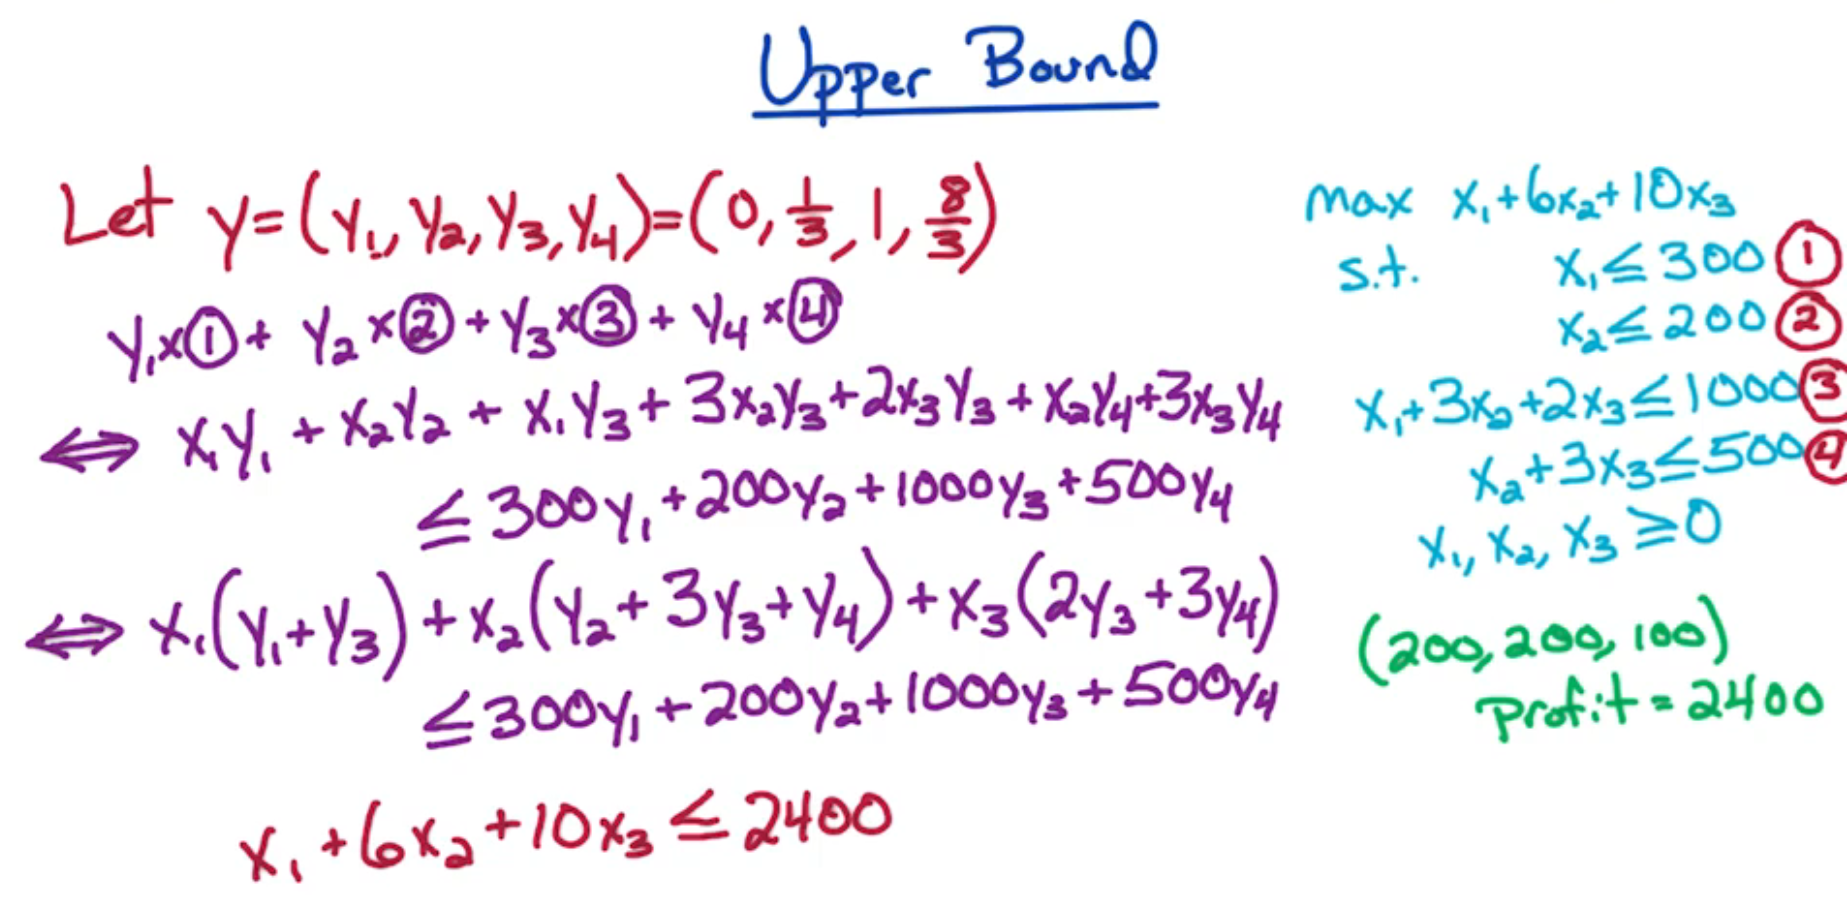 Upper Bound
Let y=(y₁, y₂, y₃, y₄)=(0, 1/3, 1, 8/3)
y₁×① + y₂×② + y₃×③ + y₄×④
⟺ x₁y₁ + x₂y₂ + x₁y₃ + 3x₂y₃+2x₃y₃ + x₂y₄+3x₃y₄
≤ 300y₁+200y₂+1000y₃+500y₄
⟺ x₁(y₁+y₃) + x₂(y₂+3y₃+y₄) + x₃(2y₃+3y₄)
≤300y₁+200y₂+1000y₃+500y₄
x₁+6x₂+10x₃ ≤ 2400
max x₁+6x₂+10x₃
s.t. x₁≤300 ①
x₂≤200 ②
x₁+3x₂+2x₃≤1000 ③
x₂+3x₃≤500 ④
x₁, x₂, x₃ ≥0
(200, 200, 100)
Profit = 2400